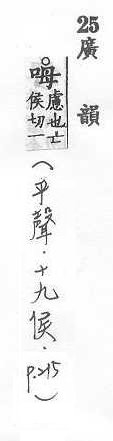 25 廣韻
呣慮也亡
侯切一
(平聲．十九侯．p.215)